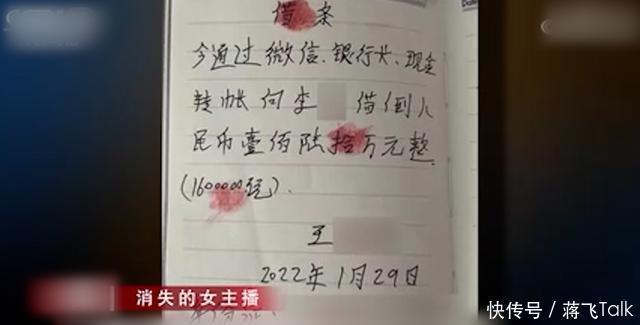 借条
今通过微信、银行卡、现金
转帐向李 借到人
民币壹佰陆拾万元整
(1600000元).
王
2022年1月29日
消失的女主播
快传号 / 蒋飞Talk